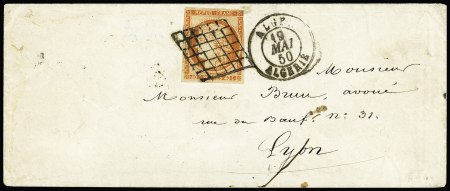 REPUB. FRANC.
ALGER
19
MAI
50
ALGERIE
Monsieur
Monsieur Brun, avoué
rue du Bœuf. n: 31.
Lyon